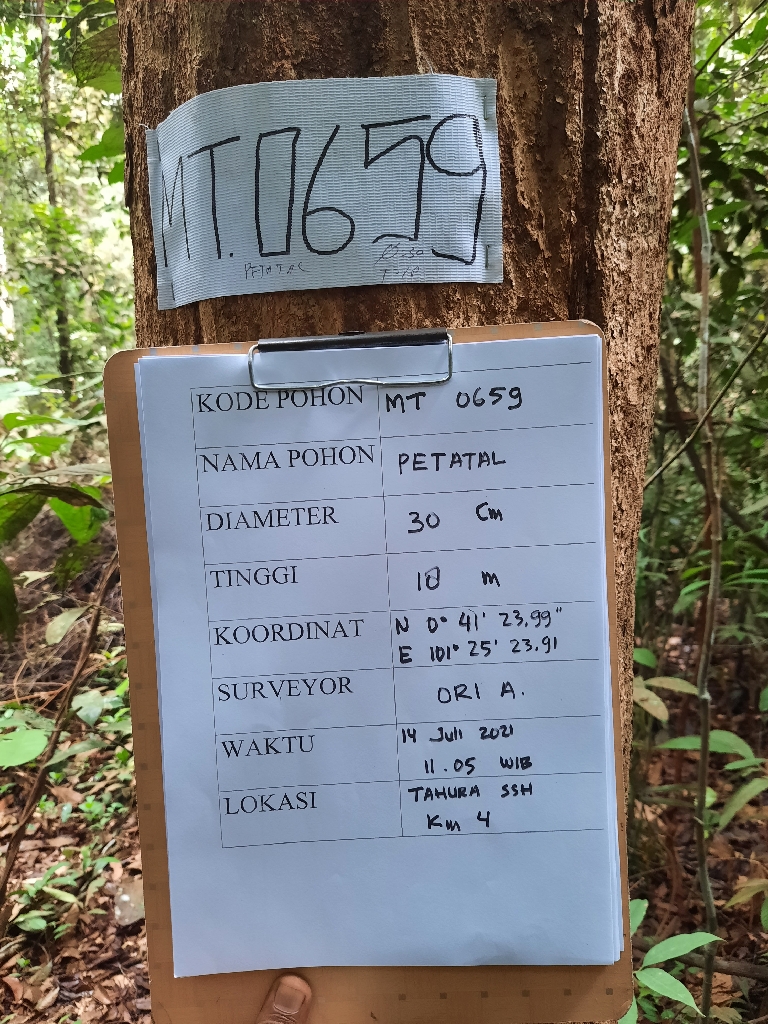 MT. 0659
PETATAL
KODE POHON MT 0659
NAMA POHON PETATAL
DIAMETER 30 Cm
TINGGI 18 m
KOORDINAT N 0° 41' 23,99"
E 101° 25' 23.91
SURVEYOR ORI A.
WAKTU 14 Juli 2021
11.05 WIB
LOKASI TAHURA SSH
Km 4